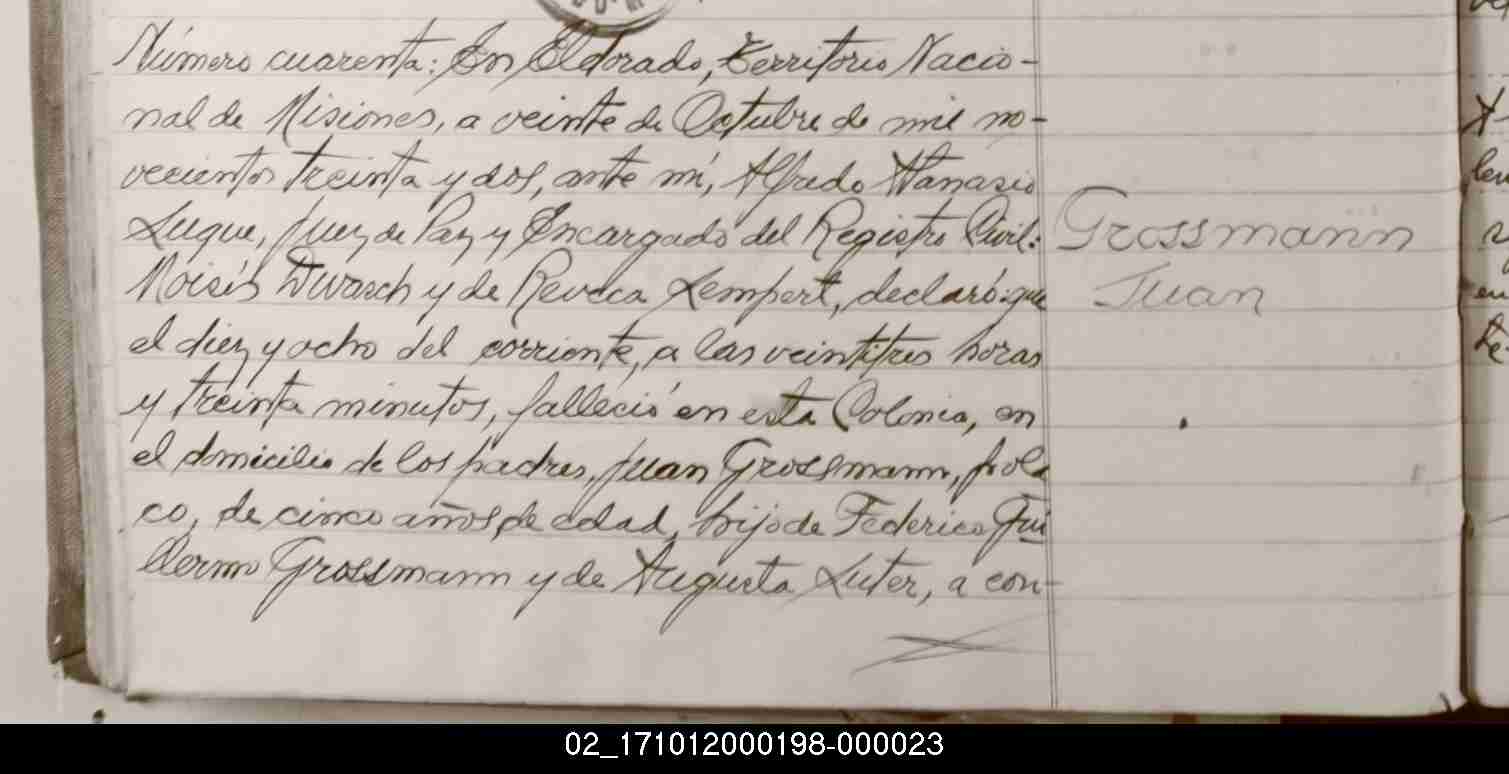 Número cuarenta: En Eldorado, Territorio Nacio-
nal de Misiones, a veinte de Octubre de mil no-
vecientos treinta y dos, ante mí, Alfredo Atanasio
Luque, Juez de Paz y Encargado del Registro Civil:
Moisés Dwasch y de Reveca Lempert, declaró: que
el diez y ocho del corriente, a las veintitres horas
y treinta minutos, falleció en esta Colonia, en
el domicilio de los padres, Juan Grossmann, pola
co, de cinco años de edad, hijo de Federico Gui
llermo Grossmann y de Augusta Luter, a con-
Grossmann
Juan
02_171012000198-000023